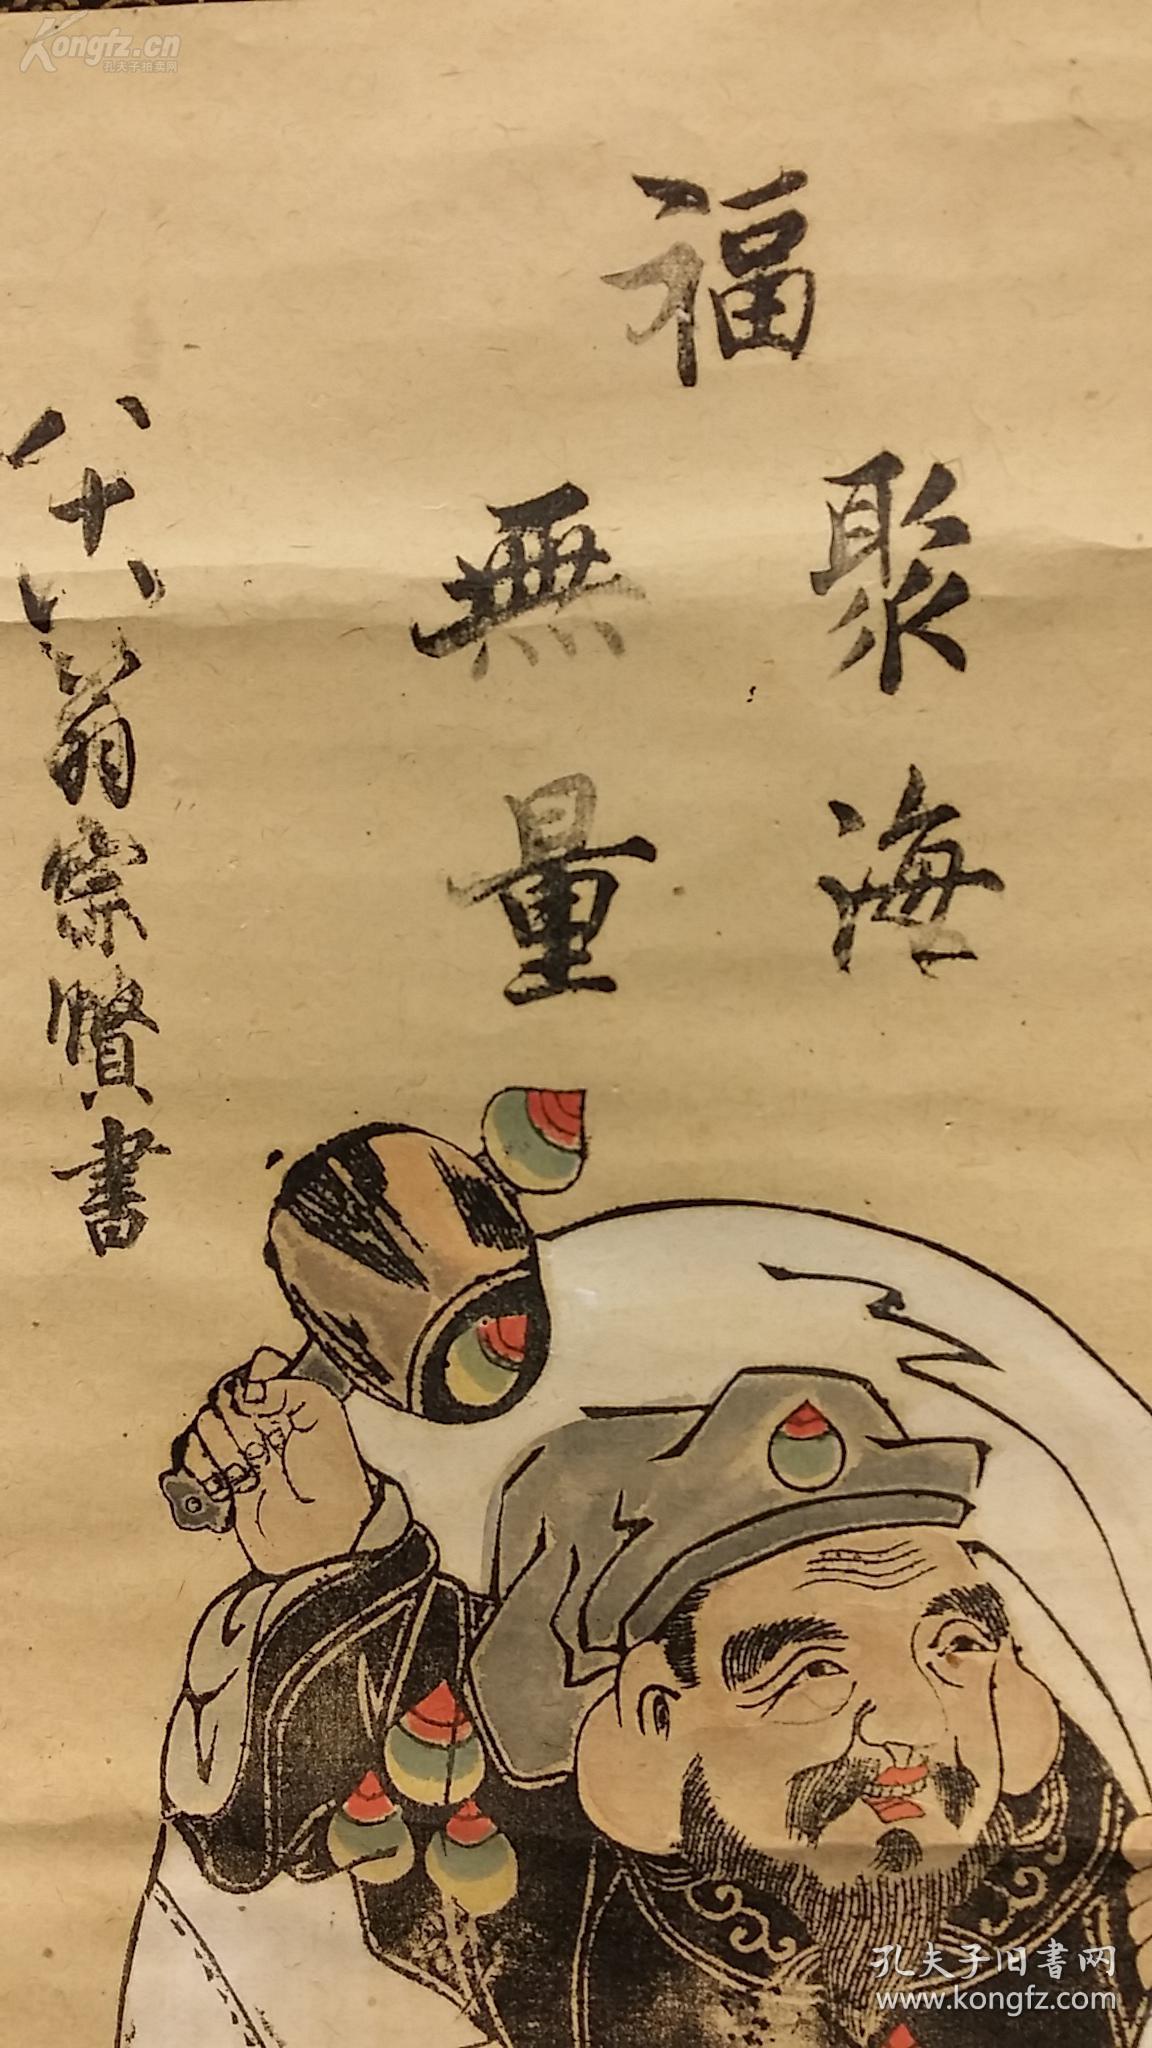 Kongfz.cn
孔夫子拍卖网
福
聚海
無量
八十八翁宗賢書
孔夫子旧書网
www.kongfz.com